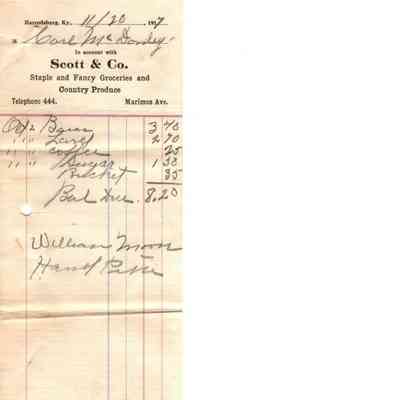 Harrodsburg, Ky., 11/20 1917
M Carl McDonley
In account with
Scott & Co.
Staple and Fancy Groceries and
Country Produce
Telephone 444. Marimon Ave.
Oct 2 3 40
" " Lard 2 70
" " Coffee 25
" " Sugar 1 50
Bucket 35
Bal Due 8.20
William Moore
Hand